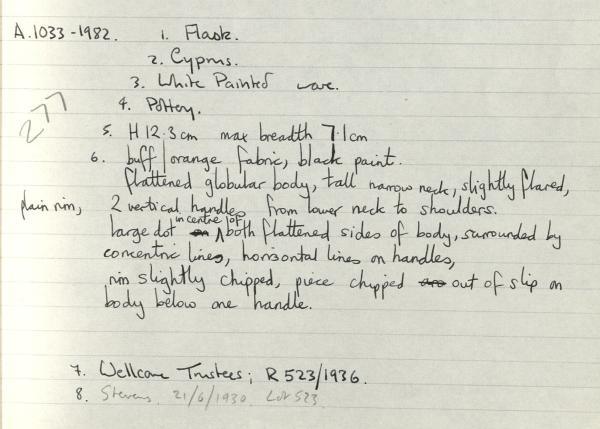 A.1033-1982. 1. Flask.
2. Cyprus.
3. White Painted ware.
4. Pottery.
277
5. H 12.3cm max breadth 7.1cm
6. buff/orange fabric, black paint.
flattened globular body, tall narrow neck, slightly flared,
plain rim, 2 vertical handles from lower neck to shoulders.
large dot in centre of both flattened sides of body, surrounded by
concentric lines, horisontal lines on handles,
rim slightly chipped, piece chipped out of slip on
body below one handle.
7. Wellcome Trustees; R 523/1936.
8. Stevens 21/6/1930 Lot 523